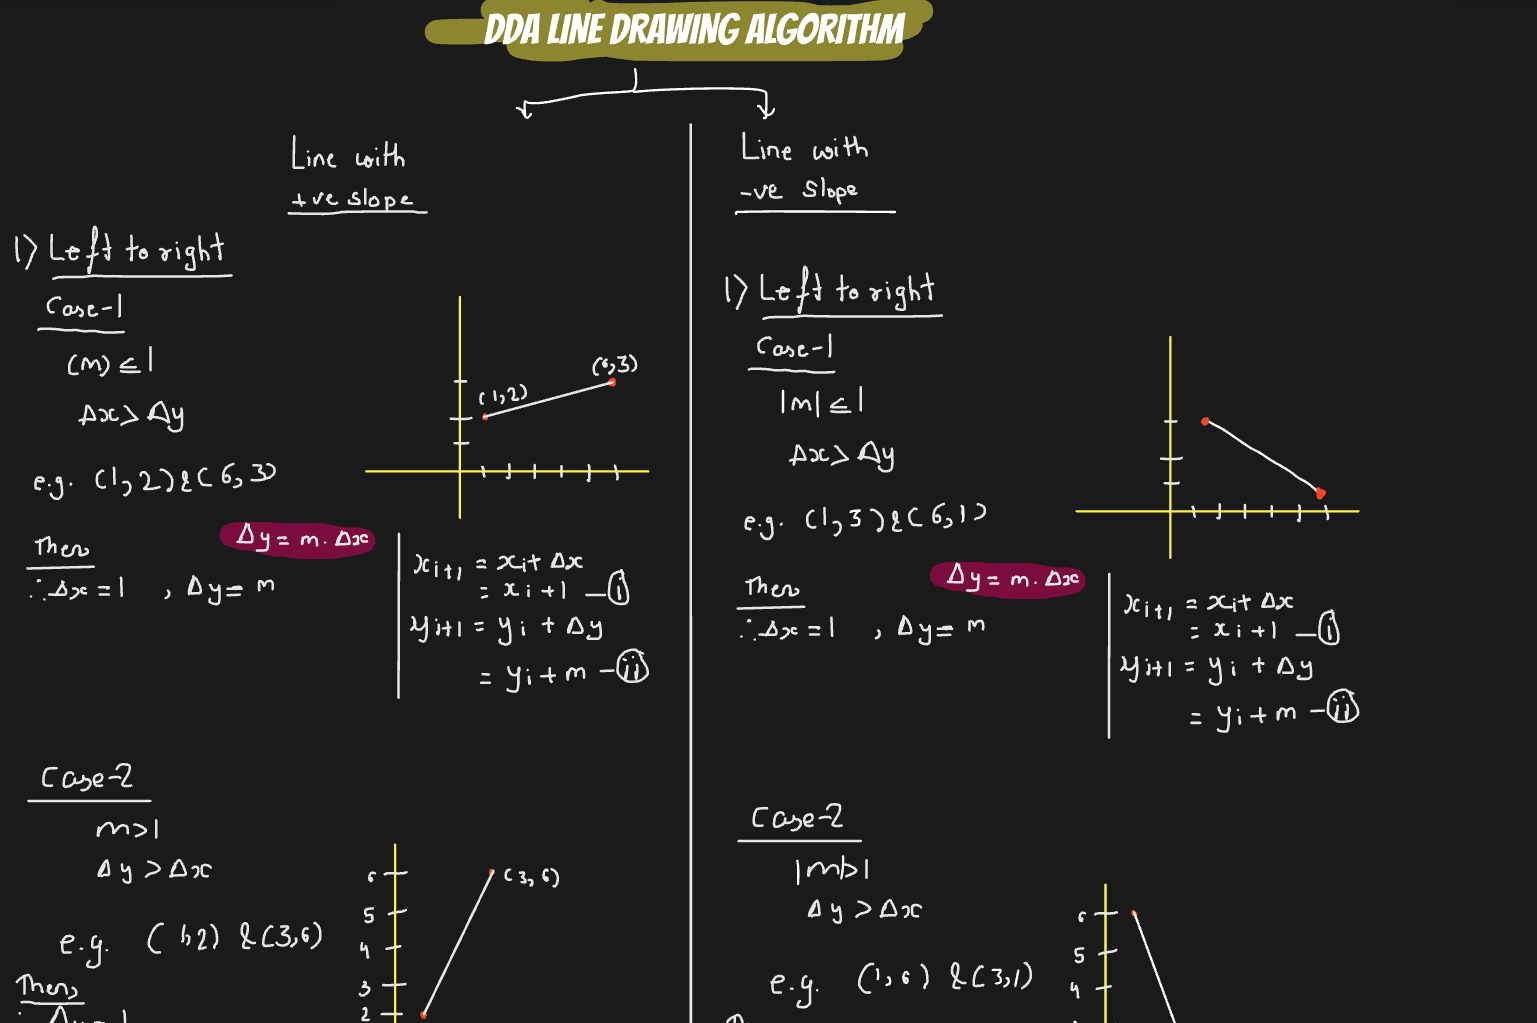 DDA LINE DRAWING ALGORITHM
Line with
+ve slope
1) Left to right
Case-1
(m) ≤ 1
Δx > Δy
e.g. (1,2) & (6,3)
(1,2)
(6,3)
Then
Δy = m . Δx
∴ Δx = 1 , Δy = m
xi+1 = xi + Δx
= xi + 1 – (i)
yi+1 = yi + Δy
= yi + m – (ii)
Case-2
m > 1
Δy > Δx
e.g. (1,2) & (3,6)
Then,
(3,6)
6
5
4
3
2
Line with
-ve slope
1) Left to right
Case-1
|m| ≤ 1
Δx > Δy
e.g. (1,3) & (6,1)
Then
Δy = m . Δx
∴ Δx = 1 , Δy = m
xi+1 = xi + Δx
= xi + 1 – (i)
yi+1 = yi + Δy
= yi + m – (ii)
Case-2
|m| > 1
Δy > Δx
e.g. (1,6) & (3,1)
6
5
4